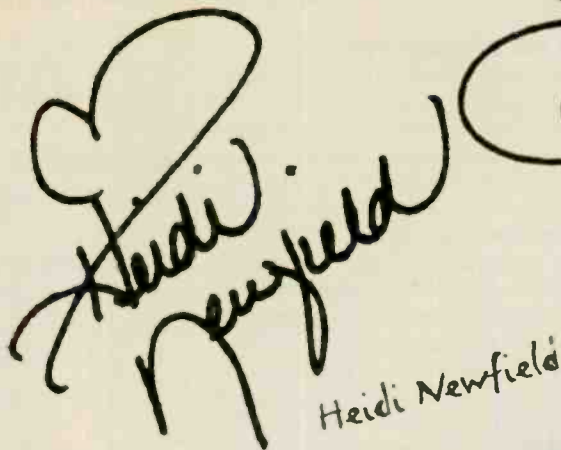 Heidi
Newfield
Heidi Newfield